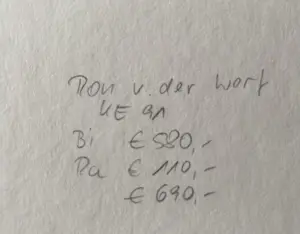 Ron v. der Werf
KE 91
Bi € 580,-
Pa € 110,-
€ 690,-